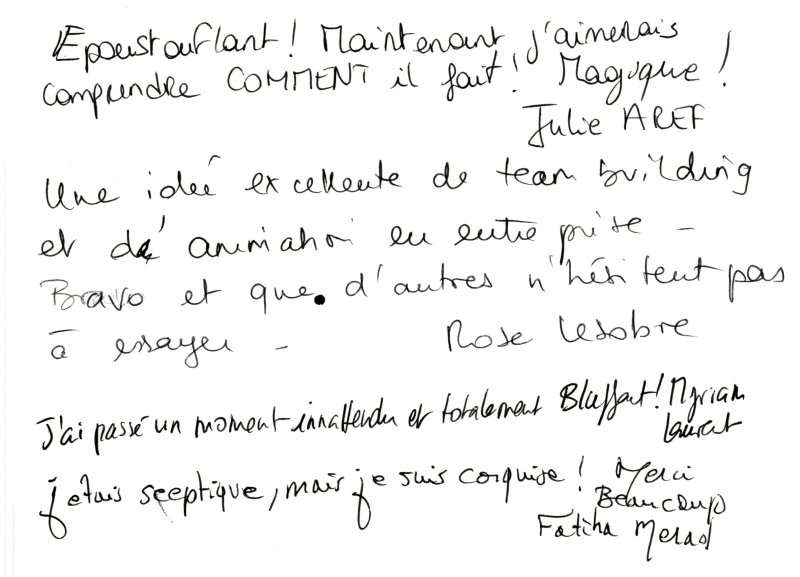 Epoustouflant! Maintenant j'aimerais
comprendre COMMENT il fait! Magique!
Julie AREF
Une idée excellente de team building
et d'animation en entreprise -
Bravo et que d'autres n'hésitent pas
à essayer - Rose Lesobre
J'ai passé un moment innattendu et totalement Bluffant! Myriam
Laurent
j'etais sceptique, mais je suis conquise! Merci
Beaucoup
Fatiha Merad